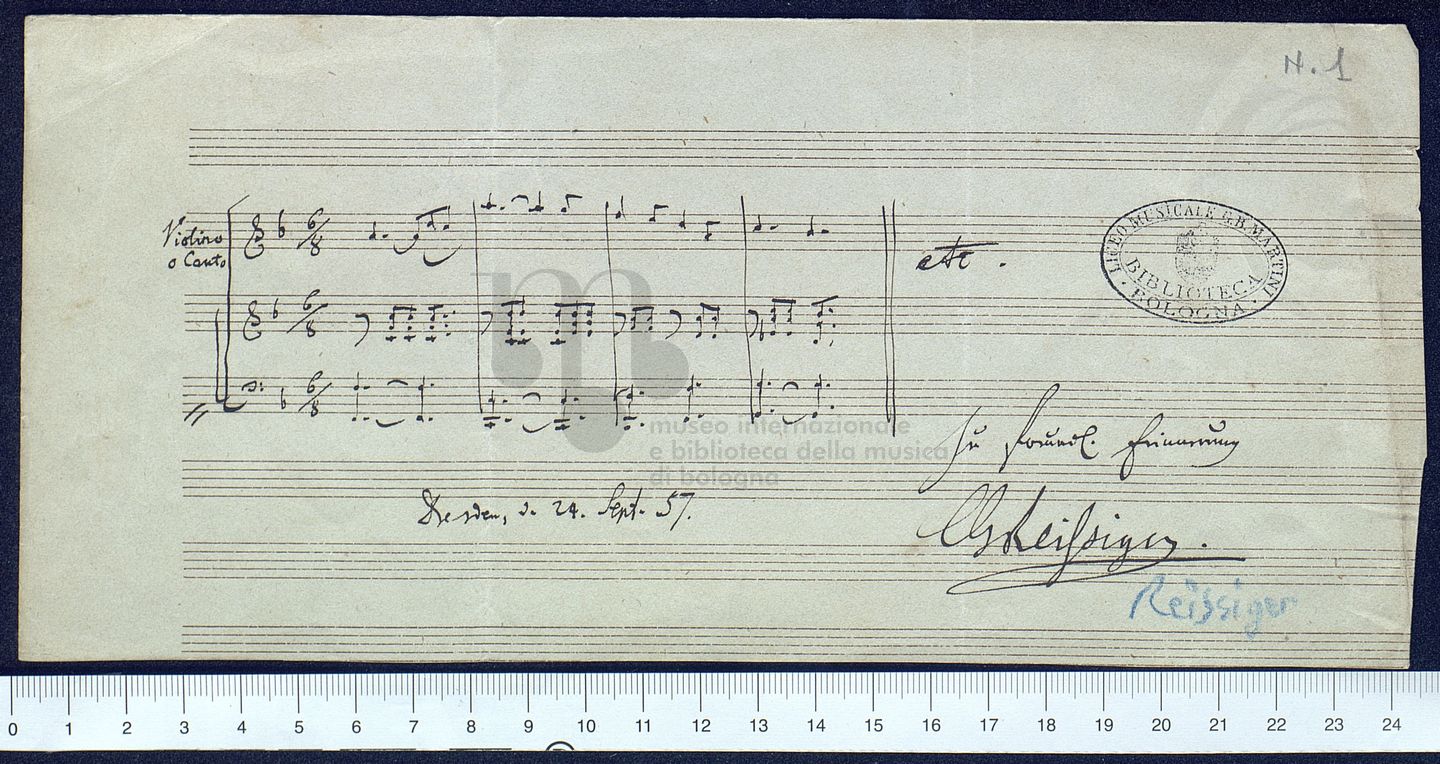 N. 1
Violino
o Canto
6/8
6/8
6/8
etc.
LICEO MUSICALE G.B. MARTINI
BIBLIOTECA
· BOLOGNA ·
museo internazionale
e biblioteca della musica
di bologna
Zu freundl. Erinnerung
Dresden, d. 24. Sept. 57.
CGReißiger.
Reissiger
0 1 2 3 4 5 6 7 8 9 10 11 12 13 14 15 16 17 18 19 20 21 22 23 24